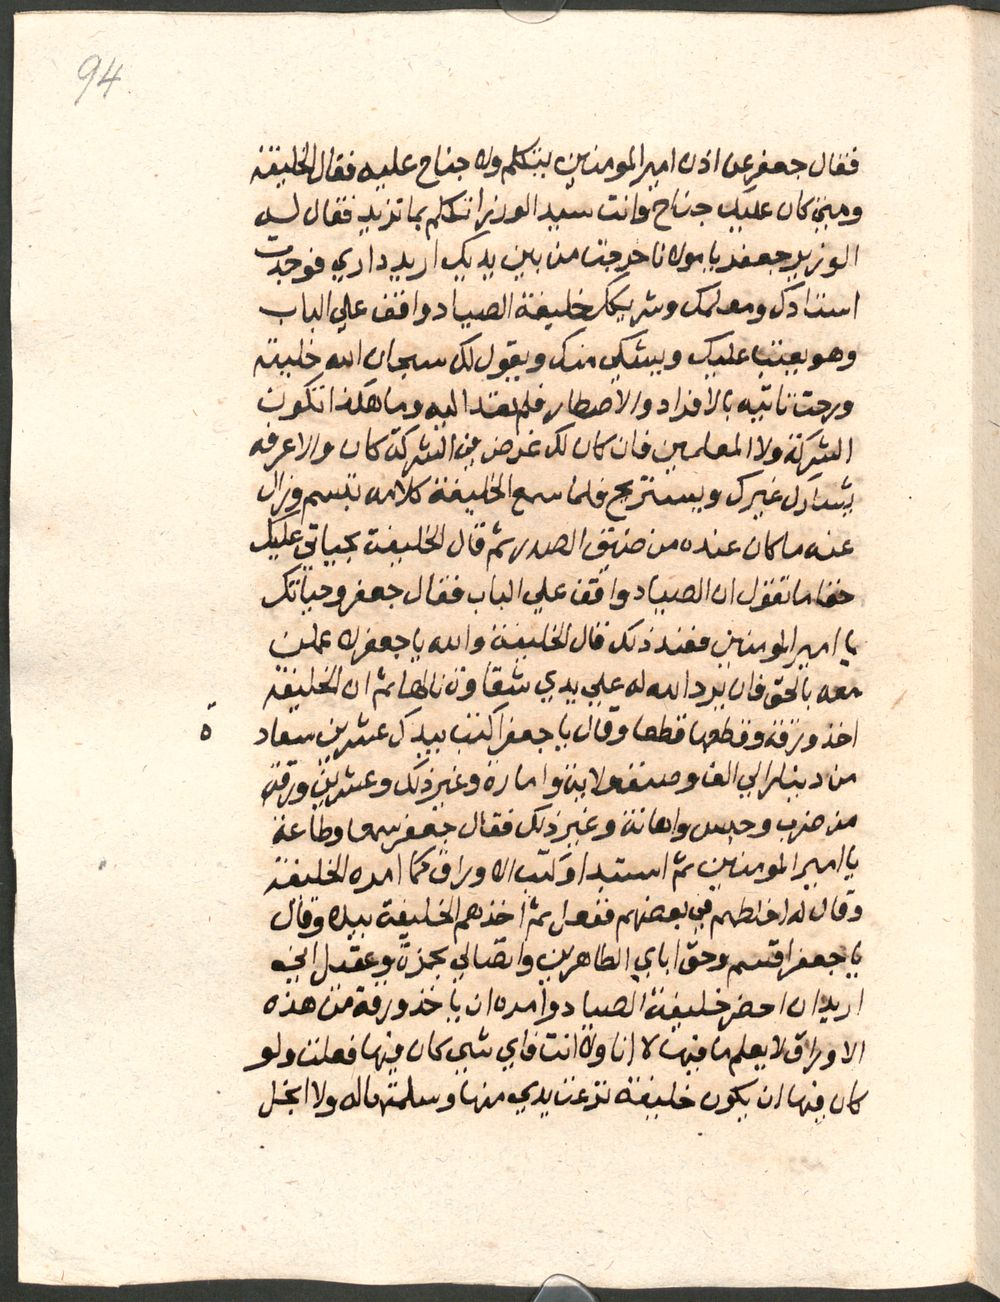 94
فقال جعفر عن اذن امير المومنين يتكلم ولا جناح عليه فقال الخليفة
ومتي كان عليك جناح وانت سيد الوزرا تكلم بما تريد فقال له
الوزير جعفر يا مولانا خرجت من بين يديك اريد داري فوجدت
استادك ومعلمك وشريكك خليفة الصياد واقف علي الباب
وهو يعتب عليك ويشكي منك ويقول لك سبحان الله خليته
ورحت تاتيه بالافراد والاصطار فلم تعد اليه وما هكذا تكون
الشركة ولا المعلمين فان كان لك غرض في الشركة كان والا عرفه
يشارك غيرك ويستريح فلما سمع الخليفة كلامه تبسم وزال
عنه ما كان عنده من ضيق الصدر ثم قال الخليفة بحياتي عليك
حقا ما تقول ان الصياد واقف علي الباب فقال جعفر وحياتك
يا امير المومنين فعند ذلك قال الخليفة والله يا جعفر لا عملن
معه بالحق فان يرد الله له علي يدي شقاوة نالها ثم ان الخليفة
اخذ ورقة وقطعها قطعا وقال يا جعفر اكتب بيدك عشرين سعاد
ة
من دينار الي الف وصنف ولاية وامارة وغير ذلك وعشرين ورقة
من ضرب وحبس واهانة وغير ذلك فقال جعفر سمعا وطاعة
يا امير المومنين ثم استبدا وكتب الاوراق كما امره الخليفة
وقال له اخلطهم في بعضهم ففعل ثم اخذهم الخليفة بيده وقال
يا جعفر اقسم وحق اباي الطاهرين واتصالي بحمزة وعقيل اني
اريد ان احضر خليفة الصياد وامره ان ياخذ ورقة من هذه
الاوراق لا يعلم ما فيها لا انا ولا انت فاي شي كان فيها فعلت ولو
كان فيها ان يكون خليفة نزعت يدي منها وسلمتها له ولا ابخل